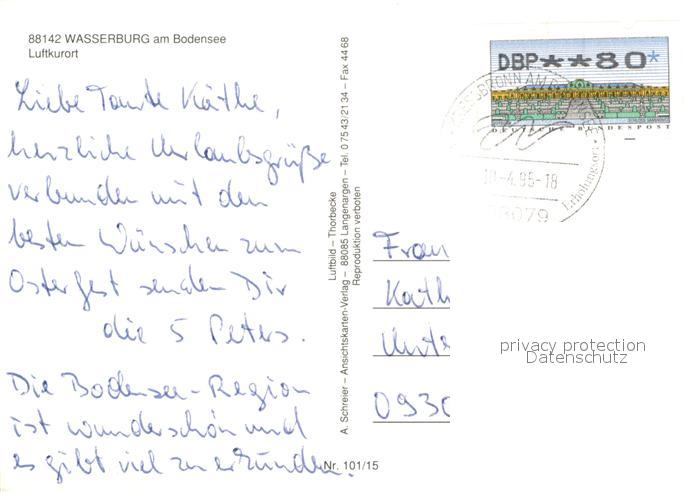 88142 WASSERBURG am Bodensee
Luftkurort
Liebe Tante Käthe,
herzliche Urlaubsgrüße
verbunden mit den
besten Wünschen zum
Osterfest senden Dir
die 5 Peters.
Die Bodensee-Region
ist wunderschön und
es gibt viel zu erkunden.
Luftbild – Thorbecke
A. Schreier – Ansichtskarten-Verlag – 88085 Langenargen – Tel. 0 75 43/2134 – Fax 44 68
Reproduktion verboten
Nr. 101/15
DBP**80*
DEUTSCHE BUNDESPOST
-4.95-18
Erholungsort
Frau
Käth
Unte
0930
privacy protection
Datenschutz